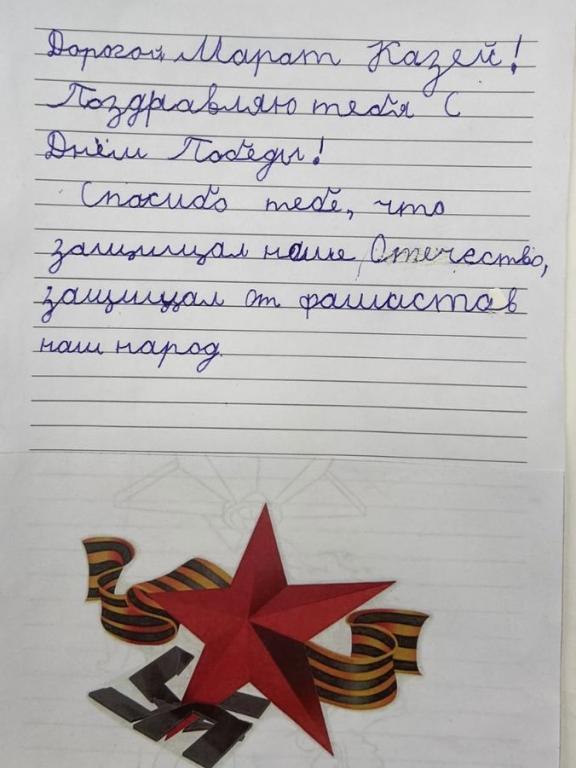 Дорогой Марат Казей!
Поздравляю тебя с
Днём Победы!
Спасибо тебе, что
защищал наше Отечество,
защищал от фашистов
наш народ.